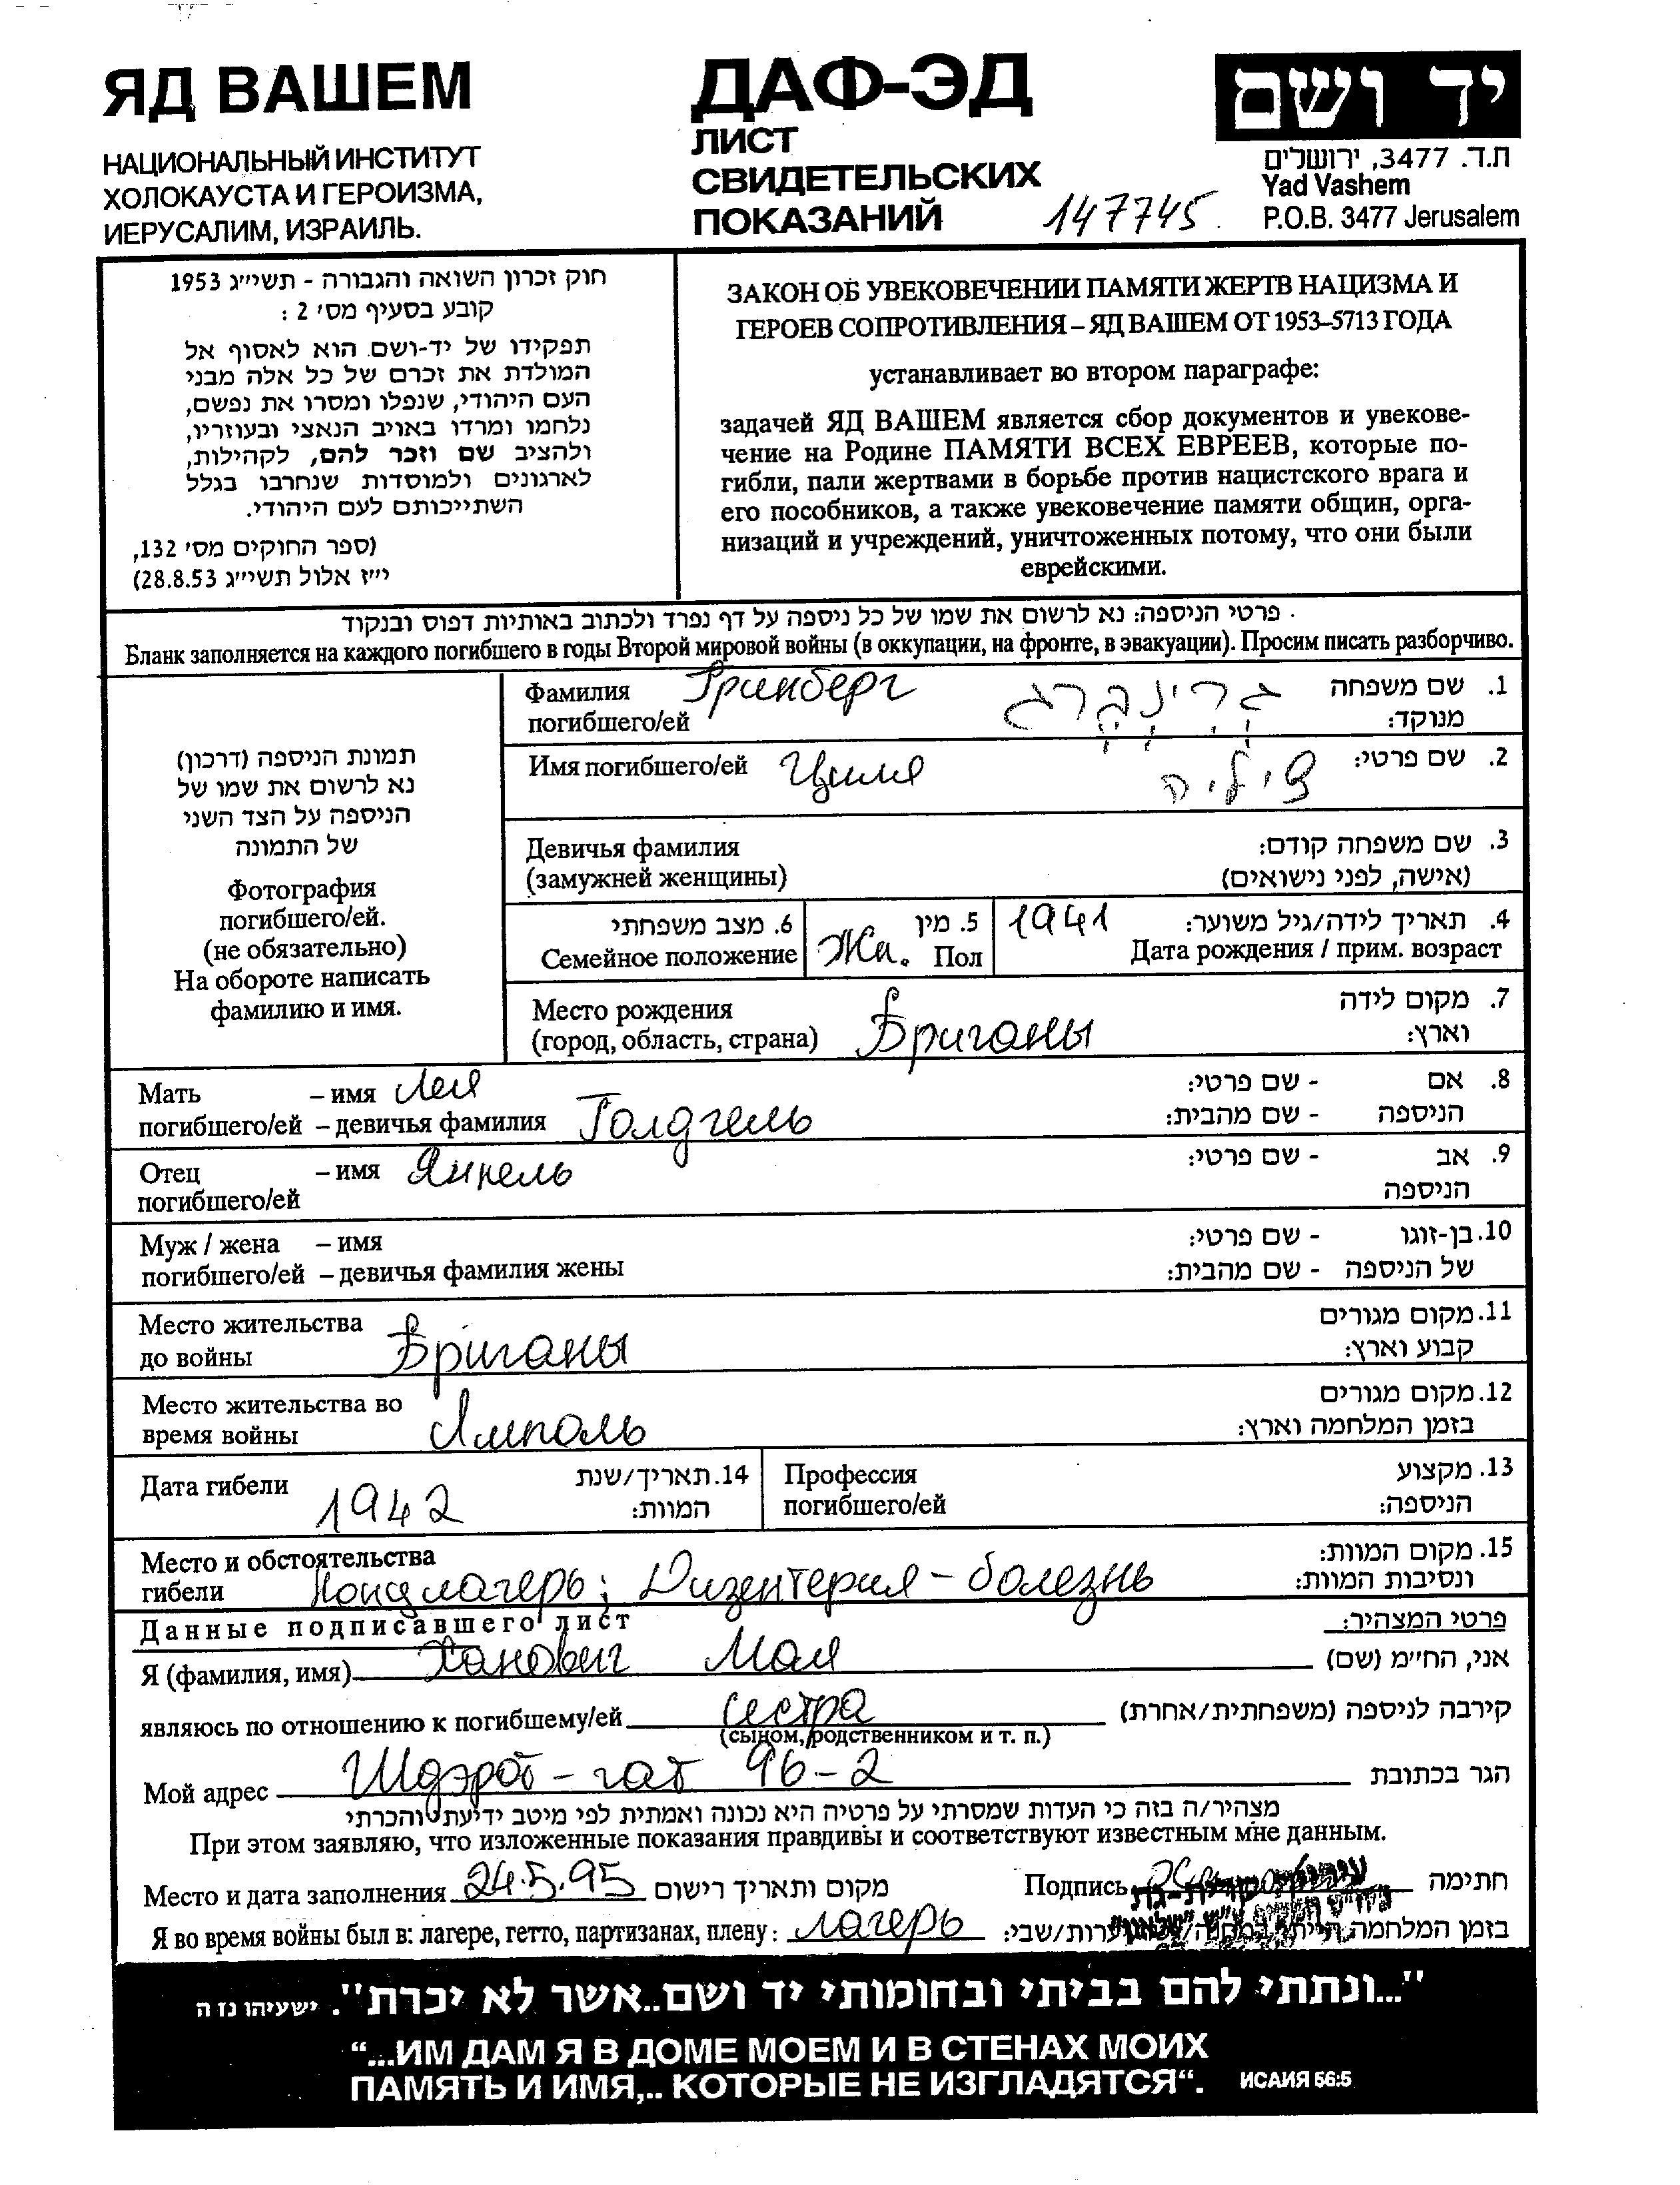 ЯД ВАШЕМ
НАЦИОНАЛЬНЫЙ ИНСТИТУТ
ХОЛОКАУСТА И ГЕРОИЗМА,
ИЕРУСАЛИМ, ИЗРАИЛЬ.
ДАФ-ЭД
ЛИСТ
СВИДЕТЕЛЬСКИХ
ПОКАЗАНИЙ
147745
יד ושם
ת.ד. 3477, ירושלים
Yad Vashem
P.O.B. 3477 Jerusalem
חוק זכרון השואה והגבורה - תשי״ג 1953
קובע בסעיף מס׳ 2 :
תפקידו של יד-ושם הוא לאסוף אל
המולדת את זכרם של כל אלה מבני
העם היהודי, שנפלו ומסרו את נפשם,
נלחמו ומרדו באויב הנאצי ובעוזריו,
ולהציב שם וזכר להם, לקהילות,
לארגונים ולמוסדות שנחרבו בגלל
השתייכותם לעם היהודי.
(ספר החוקים מס׳ 132,
י״ז אלול תשי״ג 28.8.53)
ЗАКОН ОБ УВЕКОВЕЧЕНИИ ПАМЯТИ ЖЕРТВ НАЦИЗМА И
ГЕРОЕВ СОПРОТИВЛЕНИЯ – ЯД ВАШЕМ ОТ 1953–5713 ГОДА
устанавливает во втором параграфе:
задачей ЯД ВАШЕМ является сбор документов и увекове-
чение на Родине ПАМЯТИ ВСЕХ ЕВРЕЕВ, которые по-
гибли, пали жертвами в борьбе против нацистского врага и
его пособников, а также увековечение памяти общин, орга-
низаций и учреждений, уничтоженных потому, что они были
еврейскими.
פרטי הניספה: נא לרשום את שמו של כל ניספה על דף נפרד ולכתוב באותיות דפוס ובנקוד
Бланк заполняется на каждого погибшего в годы Второй мировой войны (в оккупации, на фронте, в эвакуации). Просим писать разборчиво.
תמונת הניספה (דרכון)
נא לרשום את שמו של
הניספה על הצד השני
של התמונה
Фотография
погибшего/ей.
(не обязательно)
На обороте написать
фамилию и имя.
Фамилия Гринберг גרינברג 1. שם משפחה
погибшего/ей מנוקד:
Имя погибшего/ей Циля ציליה 2. שם פרטי:
Девичья фамилия 3. שם משפחה קודם:
(замужней женщины) (אישה, לפני נישואים)
6. מצב משפחתי 5. מין 1941 4. תאריך לידה/גיל משוער:
Семейное положение Жа. Пол Дата рождения / прим. возраст
Место рождения 7. מקום לידה
(город, область, страна) Бриганы וארץ:
Мать – имя Лея 8. אם - שם פרטי:
погибшего/ей – девичья фамилия Голдгель הניספה - שם מהבית:
Отец – имя Янкель 9. אב - שם פרטי:
погибшего/ей הניספה
Муж / жена – имя 10. בן-זוגו - שם פרטי:
погибшего/ей – девичья фамилия жены של הניספה - שם מהבית:
Место жительства 11. מקום מגורים
до войны Бриганы קבוע וארץ:
Место жительства во 12. מקום מגורים
время войны Ямполь בזמן המלחמה וארץ:
Дата гибели 1942 14. תאריך/שנת Профессия 13. מקצוע
המוות: погибшего/ей הניספה:
Место и обстоятельства 15. מקום המוות:
гибели Концлагерь; Дизентерия – болезнь ונסיבות המוות:
Данные подписавшего лист פרטי המצהיר:
Я (фамилия, имя) Ханович Мая אני, החי״מ (שם)
являюсь по отношению к погибшему/ей сестра קירבה לניספה (משפחתית/אחרת)
(сыном, родственником и т. п.)
Мой адрес Шдэрот – гат 96-2 הגר בכתובת
מצהיר/ה בזה כי העדות שמסרתי על פרטיה היא נכונה ואמתית לפי מיטב ידיעתי והכרתי
При этом заявляю, что изложенные показания правдивы и соответствуют известным мне данным.
Место и дата заполнения 24.5.95 מקום ותאריך רישום Подпись חתימה
עיריית קרית-גת
Я во время войны был в: лагере, гетто, партизанах, плену: лагерь בזמן המלחמה
"...ונתתי להם בביתי ובחומותי יד ושם..אשר לא יכרת". ישעיהו נו ה
“...ИМ ДАМ Я В ДОМЕ МОЕМ И В СТЕНАХ МОИХ
ПАМЯТЬ И ИМЯ,.. КОТОРЫЕ НЕ ИЗГЛАДЯТСЯ“. ИСАИЯ 56:5